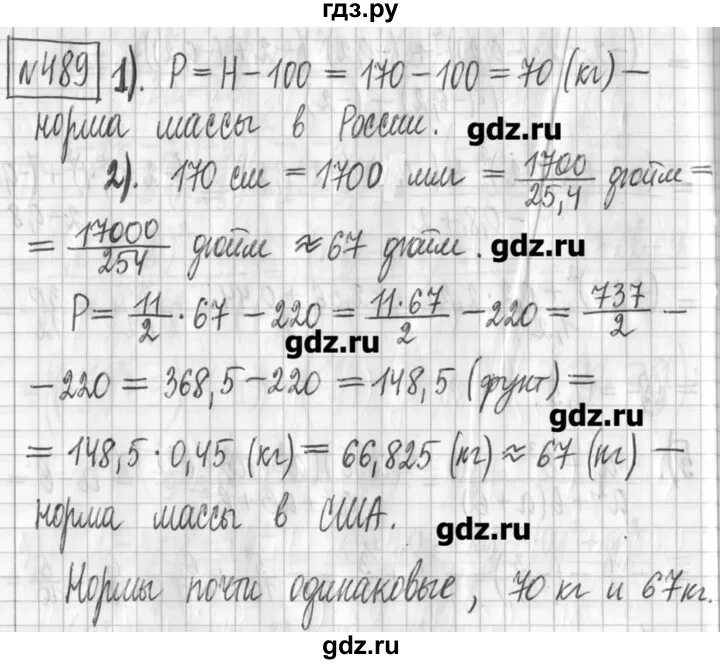 гдз.ру
№489 1). P = H – 100 = 170 – 100 = 70 (кг) –
норма массы в России. gdz.ru
2). 170 см = 1700 мм = 1700/25,4 дюйм =
= 17000/254 дюйм ≈ 67 дюйм. gdz.ru
P = 11/2 · 67 – 220 = 11·67/2 – 220 = 737/2 –
gdz.ru
– 220 = 368,5 – 220 = 148,5 (фунт) =
gdz.ru
= 148,5 · 0,45 (кг) = 66,825 (кг) ≈ 67 (кг) –
норма массы в США. gdz.ru
Нормы почти одинаковые, 70 кг и 67 кг.
gdz.ru